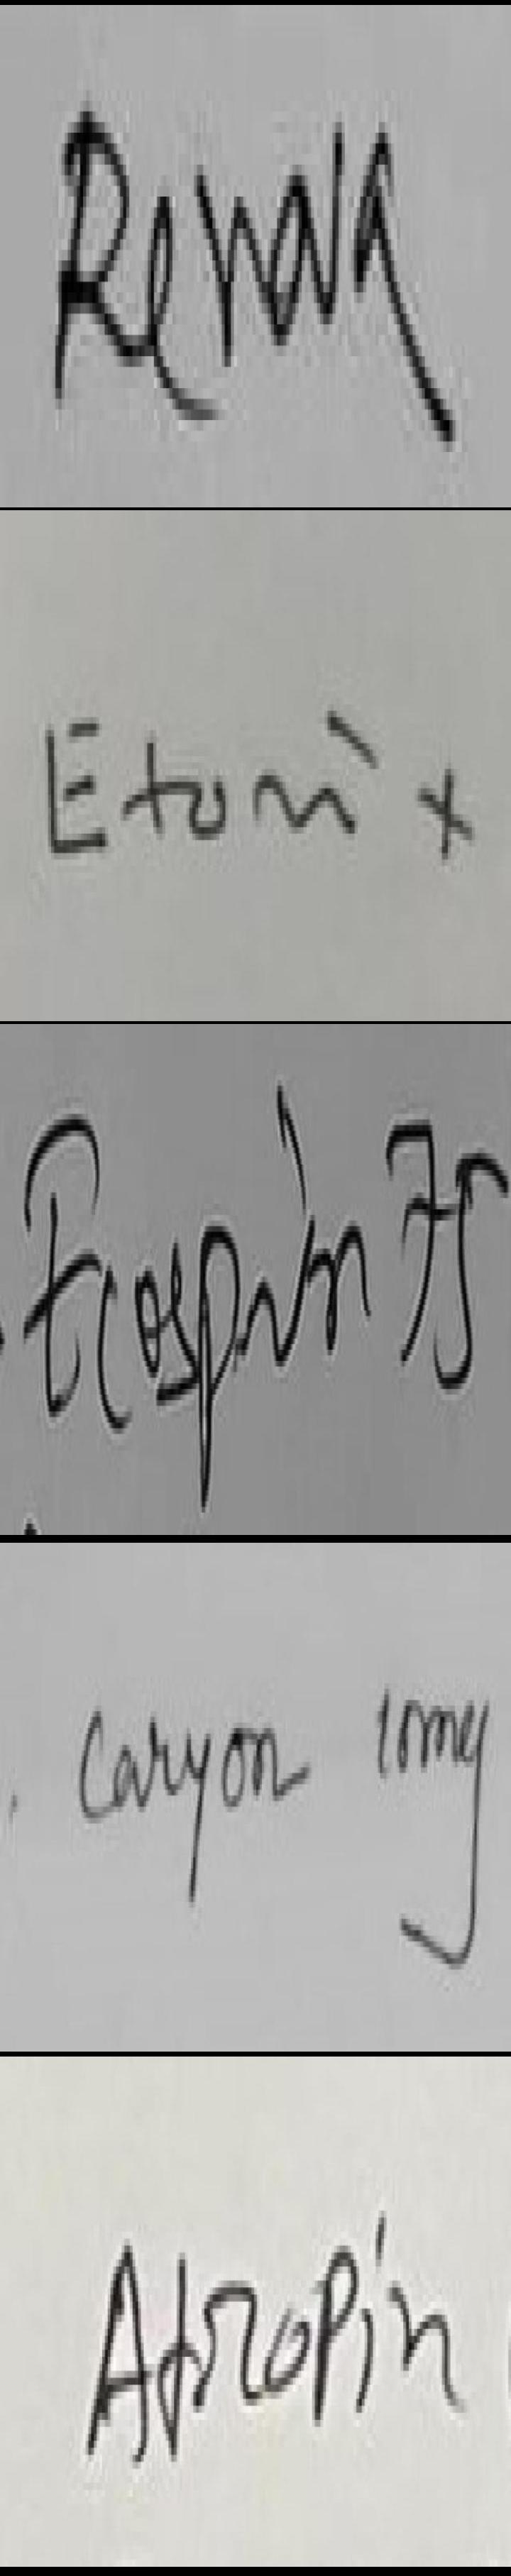 Renova
Etorix
Ecosprin 75
Caryon 10mg
Atropin